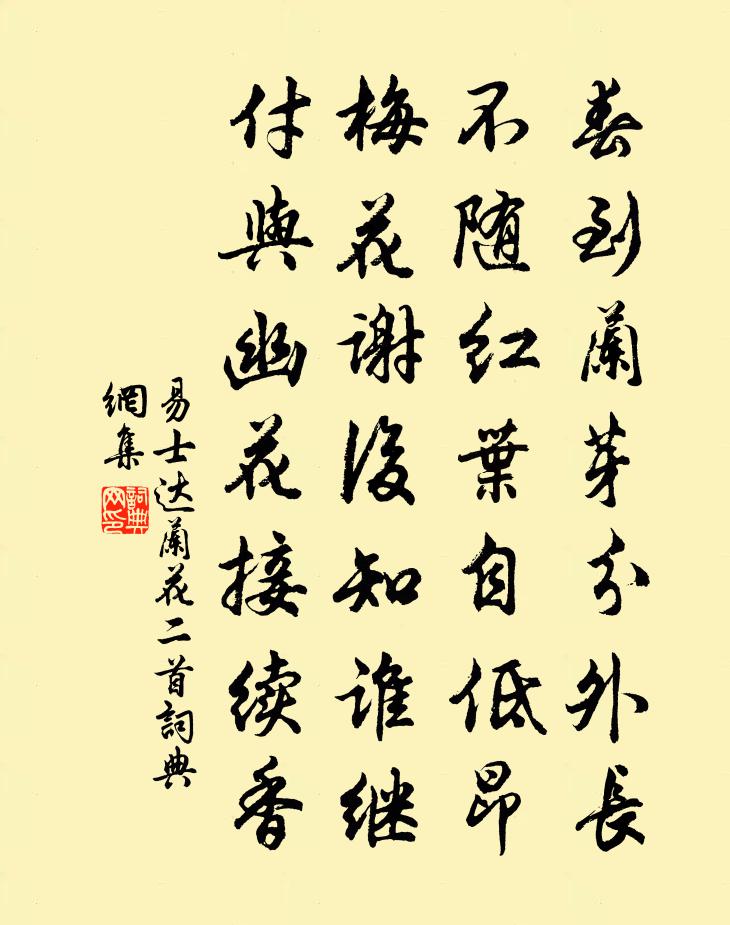 春到蘭芽分外長
不随紅葉自低昂
梅花謝後知誰继
付與幽花接续香
易士达蘭花二首詞典
網集
詞典網印